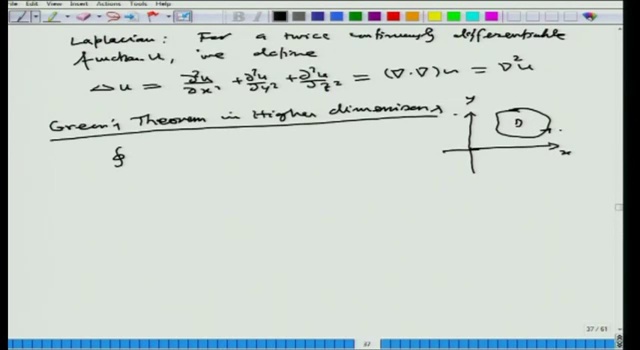 File Edit View Insert Actions Tools Help
Laplacian: For a twice continuously differentiable
function u, we define
Δu = ∂²u/∂x² + ∂²u/∂y² + ∂²u/∂z² = (∇·∇)u = ∇²u
Green's Theorem in Higher dimensions
y
D
x
∮
37 / 61
37